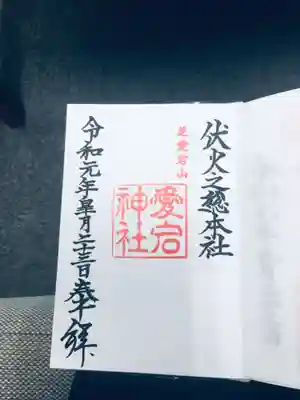 伏火之総本社
芝愛宕山
愛宕神社
令和元年皐月二十三日奉拝